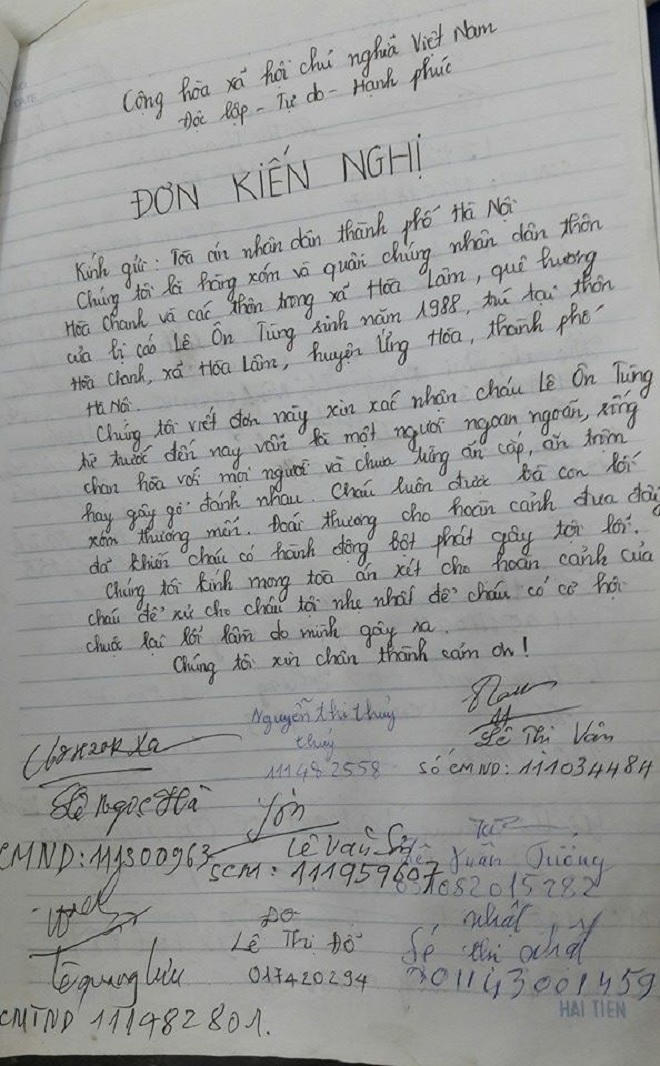 Cộng hòa xã hội chủ nghĩa Việt Nam
Độc lập - Tự do - Hạnh phúc
ĐƠN KIẾN NGHỊ
Kính gửi: Tòa án nhân dân thành phố Hà Nội
Chúng tôi là hàng xóm và quần chúng nhân dân thôn
Hòa Chanh và các thôn trong xã Hòa Lâm, quê hương
của bị cáo Lê Ôn Tùng sinh năm 1988, trú tại thôn
Hòa Chanh, xã Hòa Lâm, huyện Ứng Hòa, thành phố
Hà Nội.
Chúng tôi viết đơn này xin xác nhận cháu Lê Ôn Tùng
từ trước đến nay vẫn là một người ngoan ngoãn, sống
chan hòa với mọi người và chưa từng ăn cắp, ăn trộm
hay gây gổ đánh nhau. Cháu luôn được bà con lối
xóm thương mến. Đoái thương cho hoàn cảnh đưa đẩy
đã khiến cháu có hành động bột phát gây tội lỗi.
Chúng tôi kính mong toà án xét cho hoàn cảnh của
cháu để xử cho cháu tội nhẹ nhất để cháu có cơ hội
chuộc lại lỗi lầm do mình gây ra.
Chúng tôi xin chân thành cám ơn!
Nguyễn thị thuỷ
thuỷ
111482558
Lê Thị Vân
Số CMND: 111034484
Lê Ngọc Hà
CMND: 111300963
Lê Văn
SCM: 111959607
Lê Xuân Trường
082015282
Lê quang
CMTND 111482801.
Đỡ
Lê Thị Đỡ
017420294
nhật
Lê thị nhật
001143001459
HẢI TIẾN